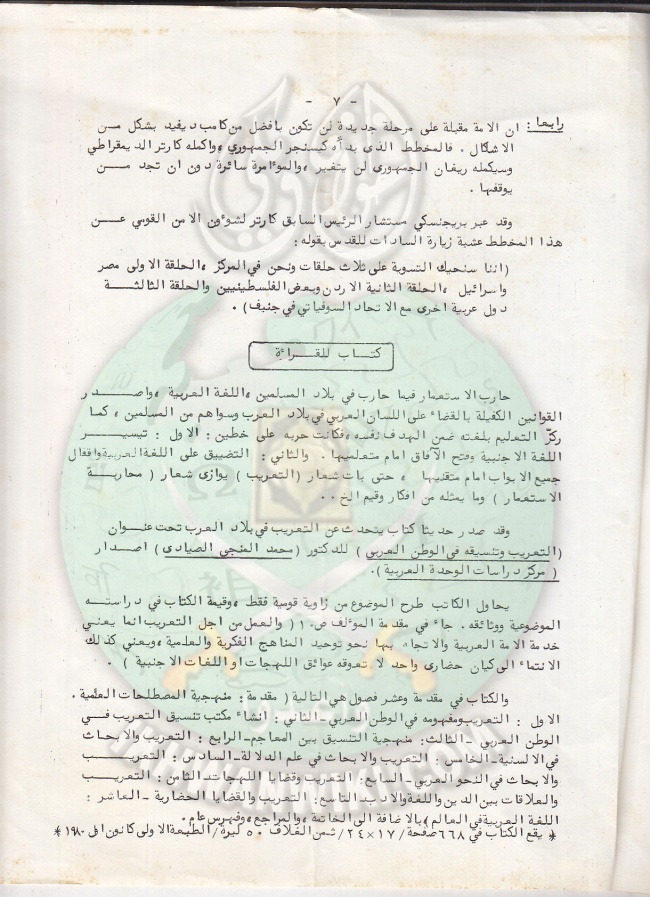 - ٧ -
رابعا: ان الامة مقبلة على مرحلة جديدة لن تكون بأفضل من كامب ديفيد بشكل من
الاشكال . فالمخطط الذي بدأه كيسنجر الجمهوري ، واكمله كارتر الديمقراطي
وسيكمله ريغان الجمهوري لن يتغير ، والمؤامرة سائرة دون ان تجد من
يوقفها .
وقد عبر بريجنسكي مستشار الرئيس السابق كارتر لشؤون الامن القومي عن
هذا المخطط عشية زيارة السادات للقدس بقوله :
( اننا سنحيك التسوية على ثلاث حلقات ونحن في المركز ، الحلقة الاولى مصر
واسرائيل ، الحلقة الثانية الاردن وبعض الفلسطينيين والحلقة الثالثة
دول عربية اخرى مع الاتحاد السوفياتي في جنيف ) .
كتاب للقراءة
حارب الاستعمار فيما حارب في بلاد المسلمين ، اللغة العربية ، واصدر
القوانين الكفيلة بالقضاء على اللسان العربي في بلاد العرب وسواهم من المسلمين ، كما
ركز التعليم بلغته ضمن الهدف نفسه ، فكانت حربه على خطين : الاول : تيسير
اللغة الاجنبية وفتح الآفاق امام متعلميها . والثاني : التضييق على اللغة العربية واقفال
جميع الابواب امام متقنيها ، حتى بات شعار ( التعريب ) يوازى شعار ( محاربة
الاستعمار ) وما يمثله من افكار وقيم الخ . .
وقد صدر حديثا كتاب يتحدث عن التعريب في بلاد العرب تحت عنوان
( التعريب وتنسيقه في الوطن العربي ) للدكتور ( محمد المنجي الصيادى ) اصدار
( مركز دراسات الوحدة العربية ) .
يحاول الكاتب طرح الموضوع من زاوية قومية فقط ، وقيمة الكتاب في دراسته
الموضوعية ووثائقه . جاء في مقدمة المؤلف ص١٠ ( والعمل من اجل التعريب انما يعني
خدمة الامة العربية والاتجاه بها نحو توحيد المناهج الفكرية والعلمية ، ويعني كذلك
الانتماء الى كيان حضارى واحد لا تعوقه عوائق اللهجات او اللغات الاجنبية ) .
والكتاب في مقدمة وعشر فصول هي التالية ( مقدمة : منهجية المصطلحات العلمية .
الاول : التعريب ومفهومه في الوطن العربي - الثاني : انشاء مكتب تنسيق التعريب في
الوطن العربي - الثالث : منهجية التنسيق بين المعاجم - الرابع : التعريب والابحاث
في الالسنية - الخامس : التعريب والابحاث في علم الدلالة - السادس : التعريب
والابحاث في النحو العربي - السابع : التعريب وقضايا اللهجات الثامن : التعريب
والعلاقات بين الدين واللغة والادب التاسع : التعريب والقضايا الحضارية - العاشر :
اللغة العربية في العالم ) بالاضافة الى الخاتمة ، والمراجع ، وفهرس عام .
* يقع الكتاب في ٦٦٨ صفحة / ١٧×٢٤ / ثمن الغلاف ٥٠ ليرة / الطبعة الاولى كانون اول ١٩٨٠ *